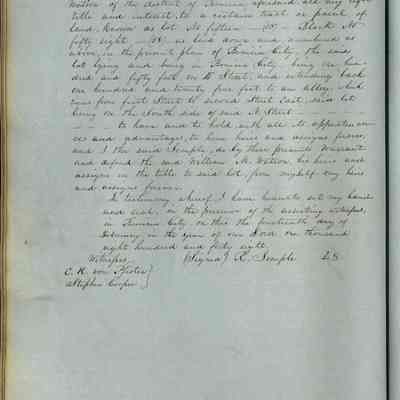 Watson of the district of Sonoma aforesaid all my right
title and interest, to a certain tract or parcel of
land, known as lot No fifteen — 15 — Block No
fifty eight — 58 — as laid down and numbered as
above, in the printed plan of Benicia City, the said
lot lying and being in Benicia City being one hun-
dred and fifty feet on K Street, and extending back
one hundred and twenty five feet to an alley which
runs from first Street to second Street East, said lot
being on the South side of said K Street
to have and to hold with all its appurtenan-
ces and advantages, to him heirs and assigns forever
and I the said Semple, do by these presents Warrant
and defend the said William M. Watson his heirs and
assigns in the title to said lot, from myself my heirs
and assigns forever.
In testimony whereof I have hereunto set my hand
and seal, in the presence of the attesting witnesses,
in Benicia City on this the fourteenth day of
February in the year of our Lord one thousand
eight hundred and forty eight,
Witnesses (Signed) R. Semple LS
C. R. von Pfister
Stephen Cooper